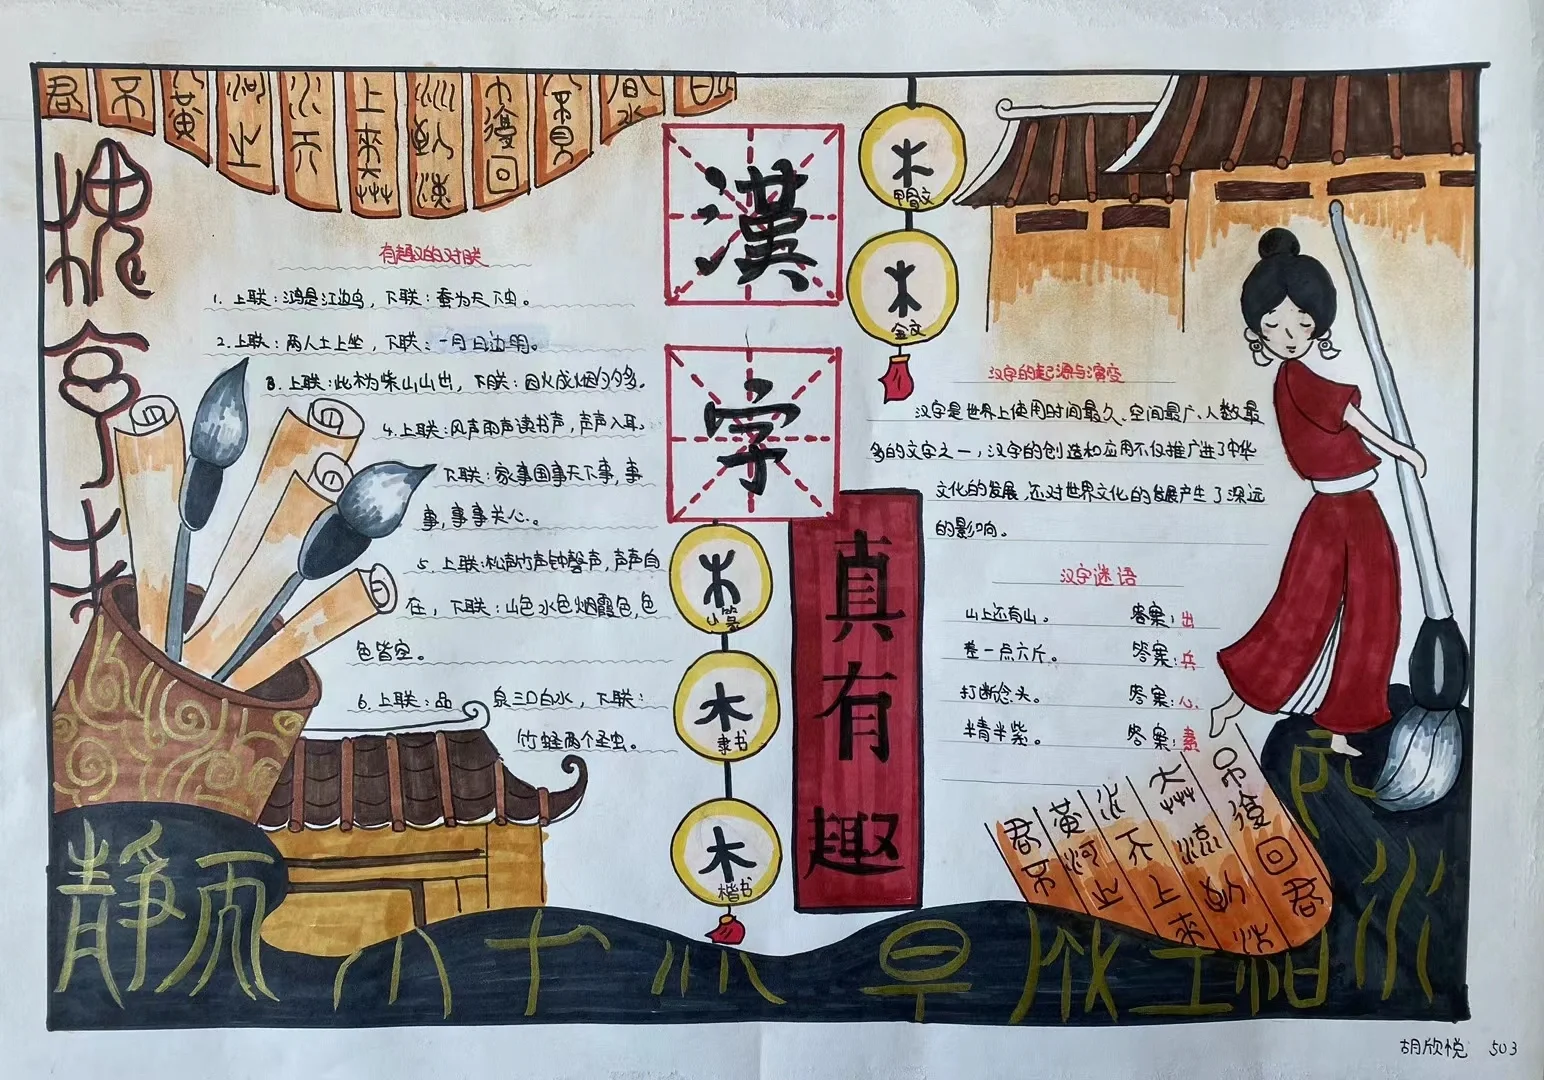 君 不 黄 河 之 水 天 上 来 奔 流 到 海 不 復 回 君 不 見
漢
字
真有趣
木
甲骨文
木
金文
木
小篆
木
隶书
木
楷书
有趣的对联
1. 上联：鸿是江边鸟，下联：蚕为天下虫。
2. 上联：两人土上坐，下联：一月日边明。
3. 上联：此木为柴山山出，下联：因火成烟夕夕多。
4. 上联：风声雨声读书声，声声入耳。
下联：家事国事天下事，事
事，事事关心。
5. 上联：松声竹声钟磬声，声声自
在，下联：山色水色烟霞色，色
色皆空。
6. 上联：品 泉三口白水，下联：
竹蛏两个圣虫。
汉字的起源与演变
汉字是世界上使用时间最久、空间最广、人数最
多的文字之一，汉字的创造和应用不仅推广进了中华
文化的发展，还对世界文化的发展产生了深远
的影响。
汉字谜语
山上还有山。 答案：出
差一点六斤。 答案：兵
打断念头。 答案：心
半青半紫。 答案：素
君不
黄河之
水天上来
奔流到海
不復回君
静
胡欣悦 503